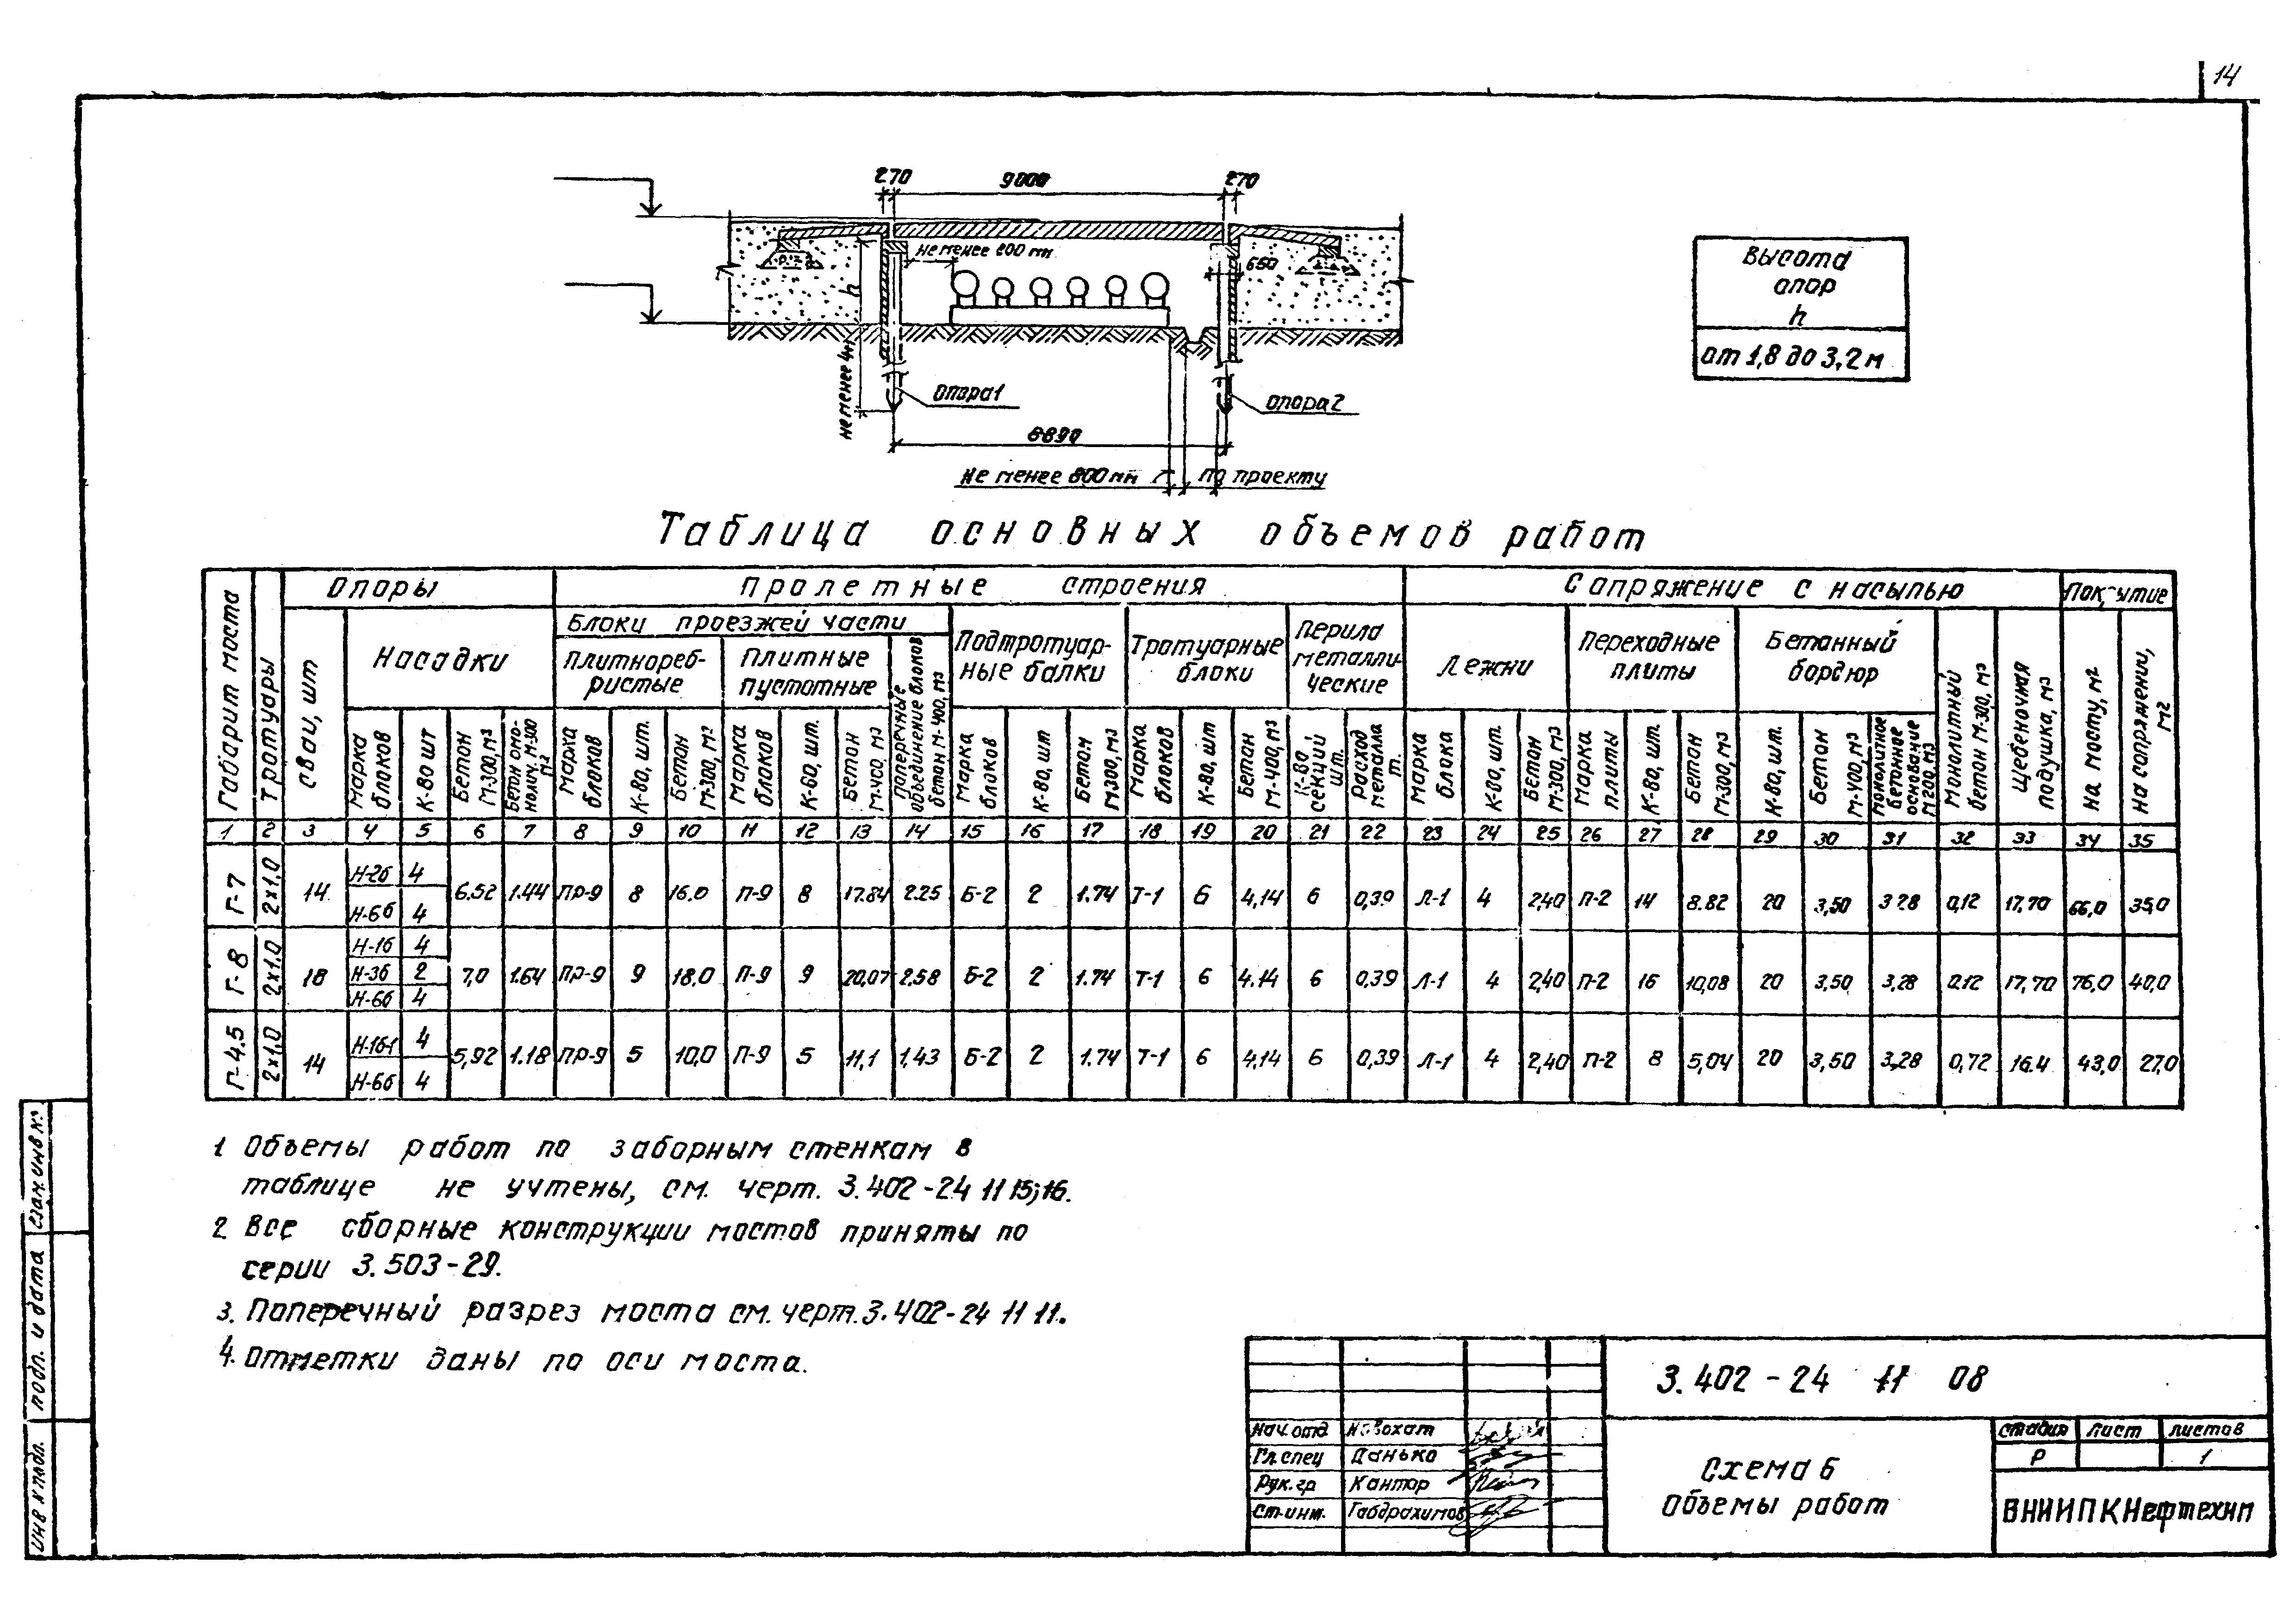 14
270 9000 270
не менее 800 мм
650
h
не менее 4м
опора1
опора2
8890
Не менее 800мм
по проекту
Высота
опор
h
от 1,8 до 3,2 м
Таблица основных объемов работ
Габарит моста
Тротуары
Опоры
Пролетные строения
Сопряжение с насыпью
Покрытие
сваи, шт
Насадки
Блоки проезжей части
Плитнореб-
ристые
Плитные
пустотные
поперечные
объединение блоков
бетон М-400, м3
Подтротуар-
ные балки
Тротуарные
блоки
Перила
металли-
ческие
Лежни
Переходные
плиты
Бетонный
бордюр
Монолитный
бетон М-300, м3
Щебеночная
подушка, м3
На мосту, м2
На сопряжении,
м2
Марка
блоков
К-во шт
Бетон
М-300, м3
Бетон омо-
нолич. М-300
м3
Марка
блоков
К-во, шт.
Бетон
М-300, м3
Марка
блоков
К-во, шт.
Бетон
М-400, м3
Марка
блоков
К-во, шт
Бетон
М300, м3
Марка
блоков
К-во, шт
Бетон
М-400, м3
К-во
секций
шт.
Расход
металла
т.
Марка
блока
К-во, шт.
Бетон
М-300, м3
Марка
плиты
К-во, шт.
Бетон
М-300, м3
К-во, шт.
Бетон
М-400, м3
Монолитное
бетонное
основание
М200, м3
1 2 3 4 5 6 7 8 9 10 11 12 13 14 15 16 17 18 19 20 21 22 23 24 25 26 27 28 29 30 31 32 33 34 35
Г-7 2х1,0 14 Н-2б 4 6.52 1.44 ПР-9 8 16.0 П-9 8 17.84 2.25 Б-2 2 1.74 Т-1 6 4,14 6 0,39 Л-1 4 2,40 П-2 14 8.82 20 3,50 3 28 0,12 17,70 66,0 35,0
Н-6б 4
Г-8 2х1.0 18 Н-1б 4
Н-3б 2 7,0 1.64 ПР-9 9 18,0 П-9 9 20,07 2.58 Б-2 2 1.74 Т-1 6 4.14 6 0,39 Л-1 4 2,40 П-2 16 10,08 20 3,50 3,28 0.12 17,70 76,0 40,0
Н-6б 4
Г-4.5 2х1,0 14 Н-1б-1 4 5,92 1.18 ПР-9 5 10,0 П-9 5 11,1 1,43 Б-2 2 1.74 Т-1 6 4,14 6 0,39 Л-1 4 2,40 П-2 8 5,04 20 3,50 3,28 0,72 16.4 43,0 27,0
Н-6б 4
1 Объемы работ по заборным стенкам в
таблице не учтены, см. черт. 3.402-24 11 15;16.
2 Все сборные конструкции мостов приняты по
серии 3.503-29.
3. Поперечный разрез моста см. черт. 3.402-24 11 11.
4. Отметки даны по оси моста.
3.402-24 11 08
Нач.отд Новохат
Гл.спец Данько
Рук.гр Кантор
Ст.инж. Габдрахимов
Схема 6
Объемы работ
стадия лист листов
Р 1
ВНИИПКНефтехим
Взам. инв №
подп. и дата
инв № подл.